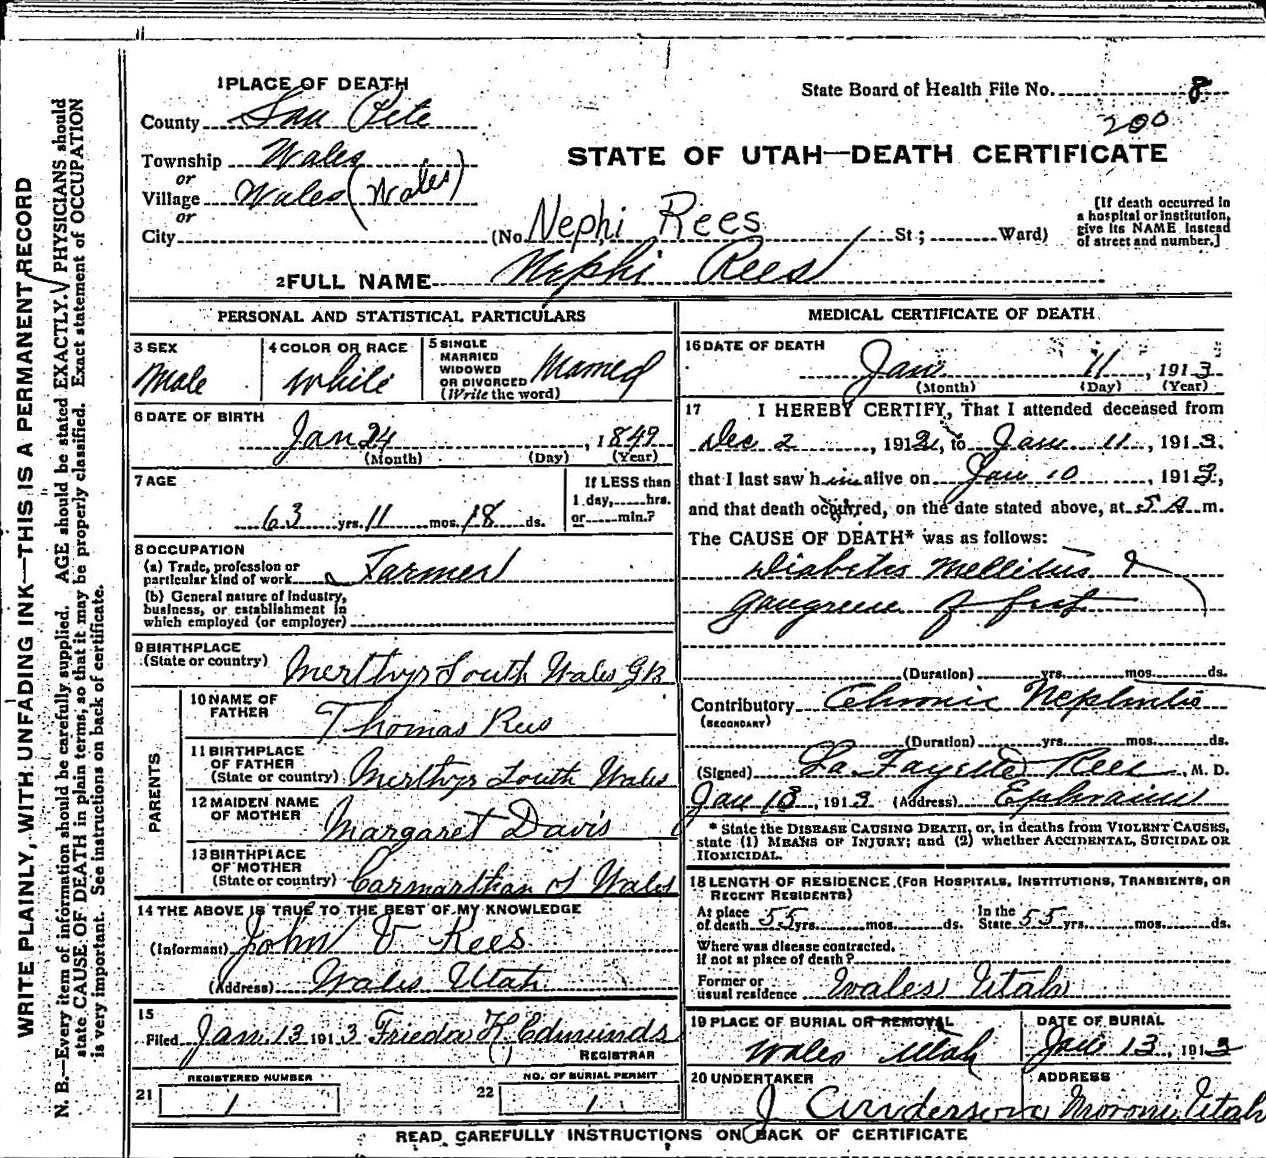 1 PLACE OF DEATH
State Board of Health File No. 8
200
County San Pete
STATE OF UTAH—DEATH CERTIFICATE
Township Wales
or
Village Wales (Wales)
or
City
(No. Nephi Rees St; Ward)
[If death occurred in
a hospital or institution,
give its NAME instead
of street and number.]
2 FULL NAME Nephi Rees
PERSONAL AND STATISTICAL PARTICULARS
3 SEX
Male
4 COLOR OR RACE
White
5 SINGLE
MARRIED
WIDOWED
OR DIVORCED
(Write the word)
Married
6 DATE OF BIRTH
Jan 24, 1849
(Month) (Day) (Year)
7 AGE
63 yrs. 11 mos. 18 ds.
If LESS than
1 day, hrs.
or min.?
8 OCCUPATION
(a) Trade, profession or
particular kind of work Farmer
(b) General nature of Industry,
business, or establishment in
which employed (or employer)
9 BIRTHPLACE
(State or country) Merthyr South Wales GB
PARENTS
10 NAME OF
FATHER Thomas Rees
11 BIRTHPLACE
OF FATHER
(State or country) Merthyr South Wales
12 MAIDEN NAME
OF MOTHER Margaret Davis
13 BIRTHPLACE
OF MOTHER
(State or country) Carmarthan S Wales
14 THE ABOVE IS TRUE TO THE BEST OF MY KNOWLEDGE
(Informant) John V Rees
(Address) Wales Utah
15
Filed Jan 13 1913 Frieda K Edmunds
REGISTRAR
REGISTERED NUMBER
21 1
NO. OF BURIAL PERMIT
22 1
MEDICAL CERTIFICATE OF DEATH
16 DATE OF DEATH
Jan 11, 1913
(Month) (Day) (Year)
17 I HEREBY CERTIFY, That I attended deceased from
Dec 2, 1912, to Jan 11, 1913,
that I last saw him alive on Jan 10, 1913,
and that death occurred, on the date stated above, at 5 A m.
The CAUSE OF DEATH* was as follows:
Diabetes Mellitus &
Gangrene of feet
(Duration) yrs. mos. ds.
Contributory Chronic Nephritis
(SECONDARY)
(Duration) yrs. mos. ds.
(Signed) La Fayette Rees, M. D.
Jan 13, 1913 (Address) Ephraim
* State the DISEASE CAUSING DEATH, or, in deaths from VIOLENT CAUSES,
state (1) MEANS OF INJURY; and (2) whether ACCIDENTAL, SUICIDAL OR
HOMICIDAL.
18 LENGTH OF RESIDENCE (FOR HOSPITALS, INSTITUTIONS, TRANSIENTS, OR
RECENT RESIDENTS)
At place
of death 55 yrs. mos. ds.
In the
State 55 yrs. mos. ds.
Where was disease contracted,
if not at place of death?
Former or
usual residence Wales Utah
19 PLACE OF BURIAL OR REMOVAL
Wales Utah
DATE OF BURIAL
Jan 13, 1913
20 UNDERTAKER
J Anderson
ADDRESS
Moroni Utah
READ CAREFULLY INSTRUCTIONS ON BACK OF CERTIFICATE
WRITE PLAINLY, WITH UNFADING INK—THIS IS A PERMANENT RECORD
N. B.—Every item of information should be carefully supplied. AGE should be stated EXACTLY. PHYSICIANS should
state CAUSE OF DEATH in plain terms, so that it may be properly classified. Exact statement of OCCUPATION
is very important. See instructions on back of certificate.